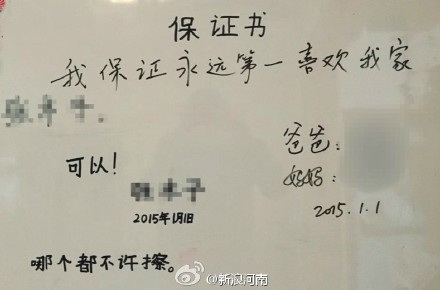 保证书
我保证永远第一喜欢我家
可以！
2015年1月1日
爸爸：
妈妈：
2015.1.1
哪个都不许擦。
@新浪河南